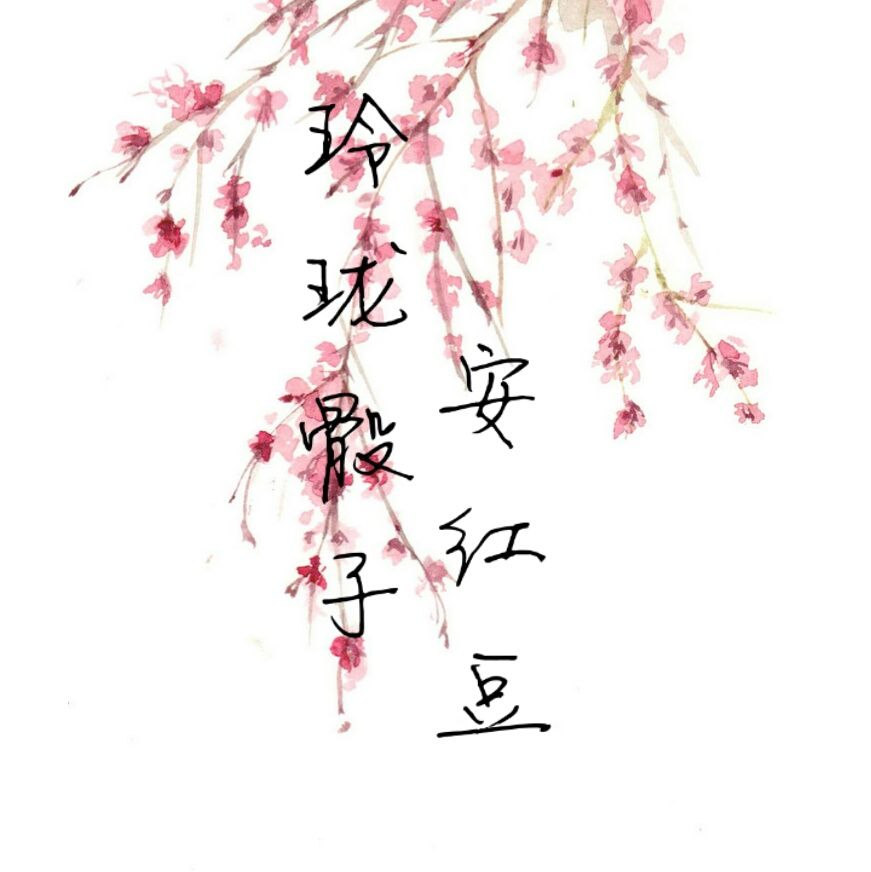 玲珑骰子
安红豆